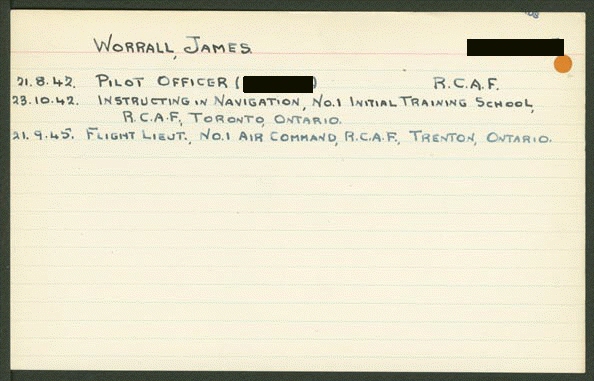 WORRALL, JAMES.
21.8.42. PILOT OFFICER ( ) R.C.A.F.
23.10.42. INSTRUCTING IN NAVIGATION, NO.1 INITIAL TRAINING SCHOOL,
R.C.A.F., TORONTO, ONTARIO.
21.9.45. FLIGHT LIEUT., NO.1 AIR COMMAND, R.C.A.F., TRENTON, ONTARIO.